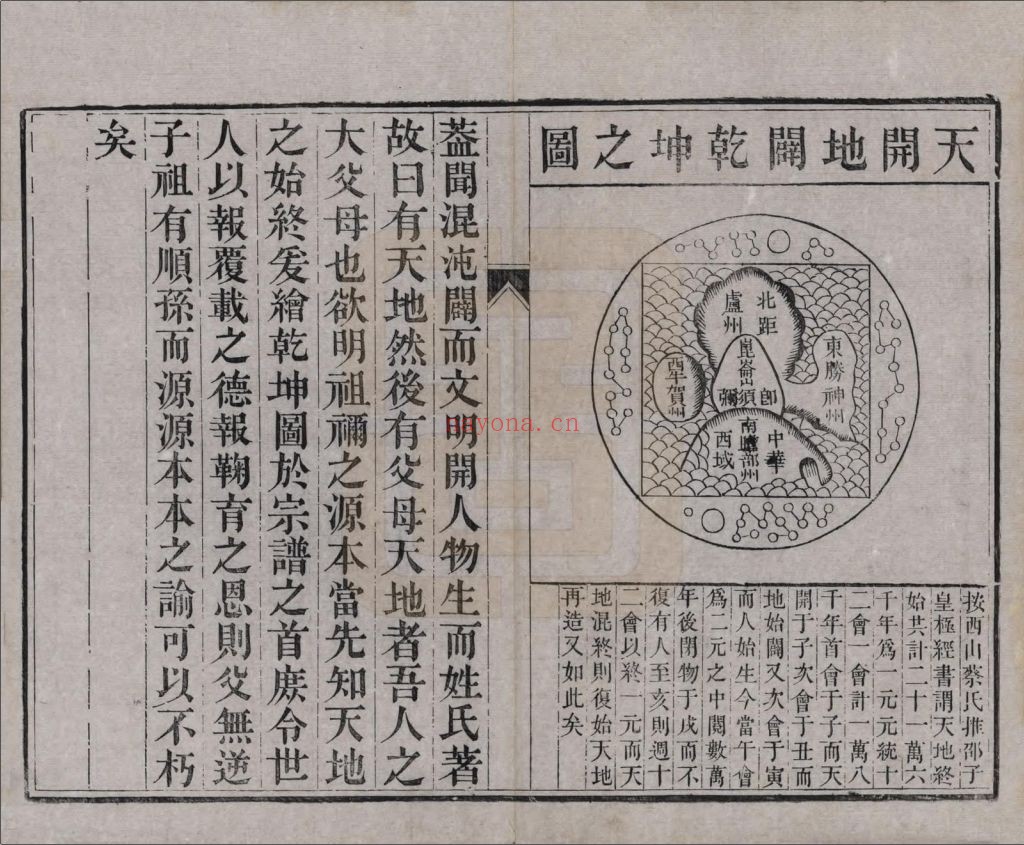 天開地闢乾坤之圖
北距
盧州
東勝神州
崑崙
即須彌
酉牛賀州
南贍部州
中華
西域
按西山蔡氏推邵子
皇極經書謂天地終
始共計二十一萬六
千年為一元元統十
二會一會計一萬八
千年首會于子而天
開于子次會于丑而
地始闢又次會于寅
而人始生今當午會
為二元之中閱數萬
年後閉物于戌而不
復有人至亥則週十
二會以終一元而天
地混終則復始天地
再造又如此矣
葢聞混沌闢而文明開人物生而姓氏著
故曰有天地然後有父母天地者吾人之
大父母也欲明祖禰之源本當先知天地
之始終爰繪乾坤圖於宗譜之首庻令世
人以報覆載之德報鞠育之恩則父無逆
子祖有順孫而源源本本之諭可以不朽
矣
ggyona.cn